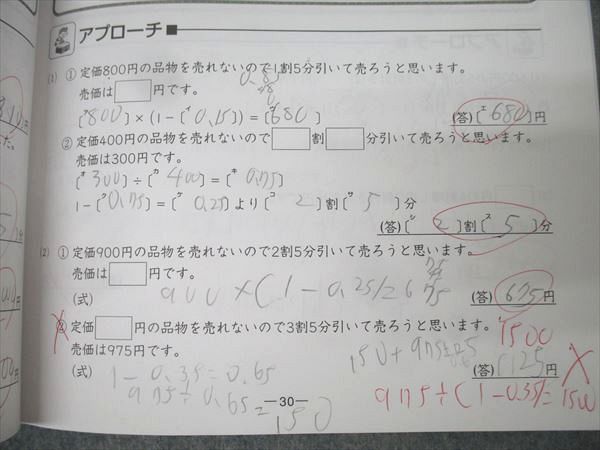 アプローチ
(1) ① 定価800円の品物を売れないので1割5分引いて売ろうと思います。
0.85
売価は□円です。
[ア 800] × (1−[イ 0.15]) = [ウ 680]
(答) [エ 680] 円
② 定価400円の品物を売れないので□割□分引いて売ろうと思います。
売価は300円です。
[オ 300] ÷ [カ 400] = [キ 0.75]
1−[ク 0.75] = [ケ 0.25] より [コ 2] 割 [サ 5] 分
(答) [シ 2] 割 [ス 5] 分
(2) ① 定価900円の品物を売れないので2割5分引いて売ろうと思います。
売価は□円です。
(式) 900×(1−0.25)=675
(答) 675円
② 定価□円の品物を売れないので3割5分引いて売ろうと思います。
売価は975円です。
1500
150+975
(式) 1−0.35=0.65
(答) 1125円
975÷0.65=150
975÷(1−0.35)=1500
—30—